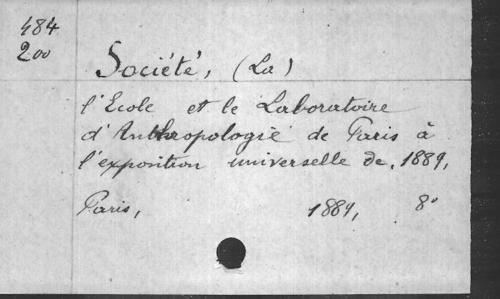 484
200
Société, (La)
l'Ecole et le Laboratoire
d'Anthropologie de Paris à
l'exposition universelle de, 1889,
Paris, 1889, 8°